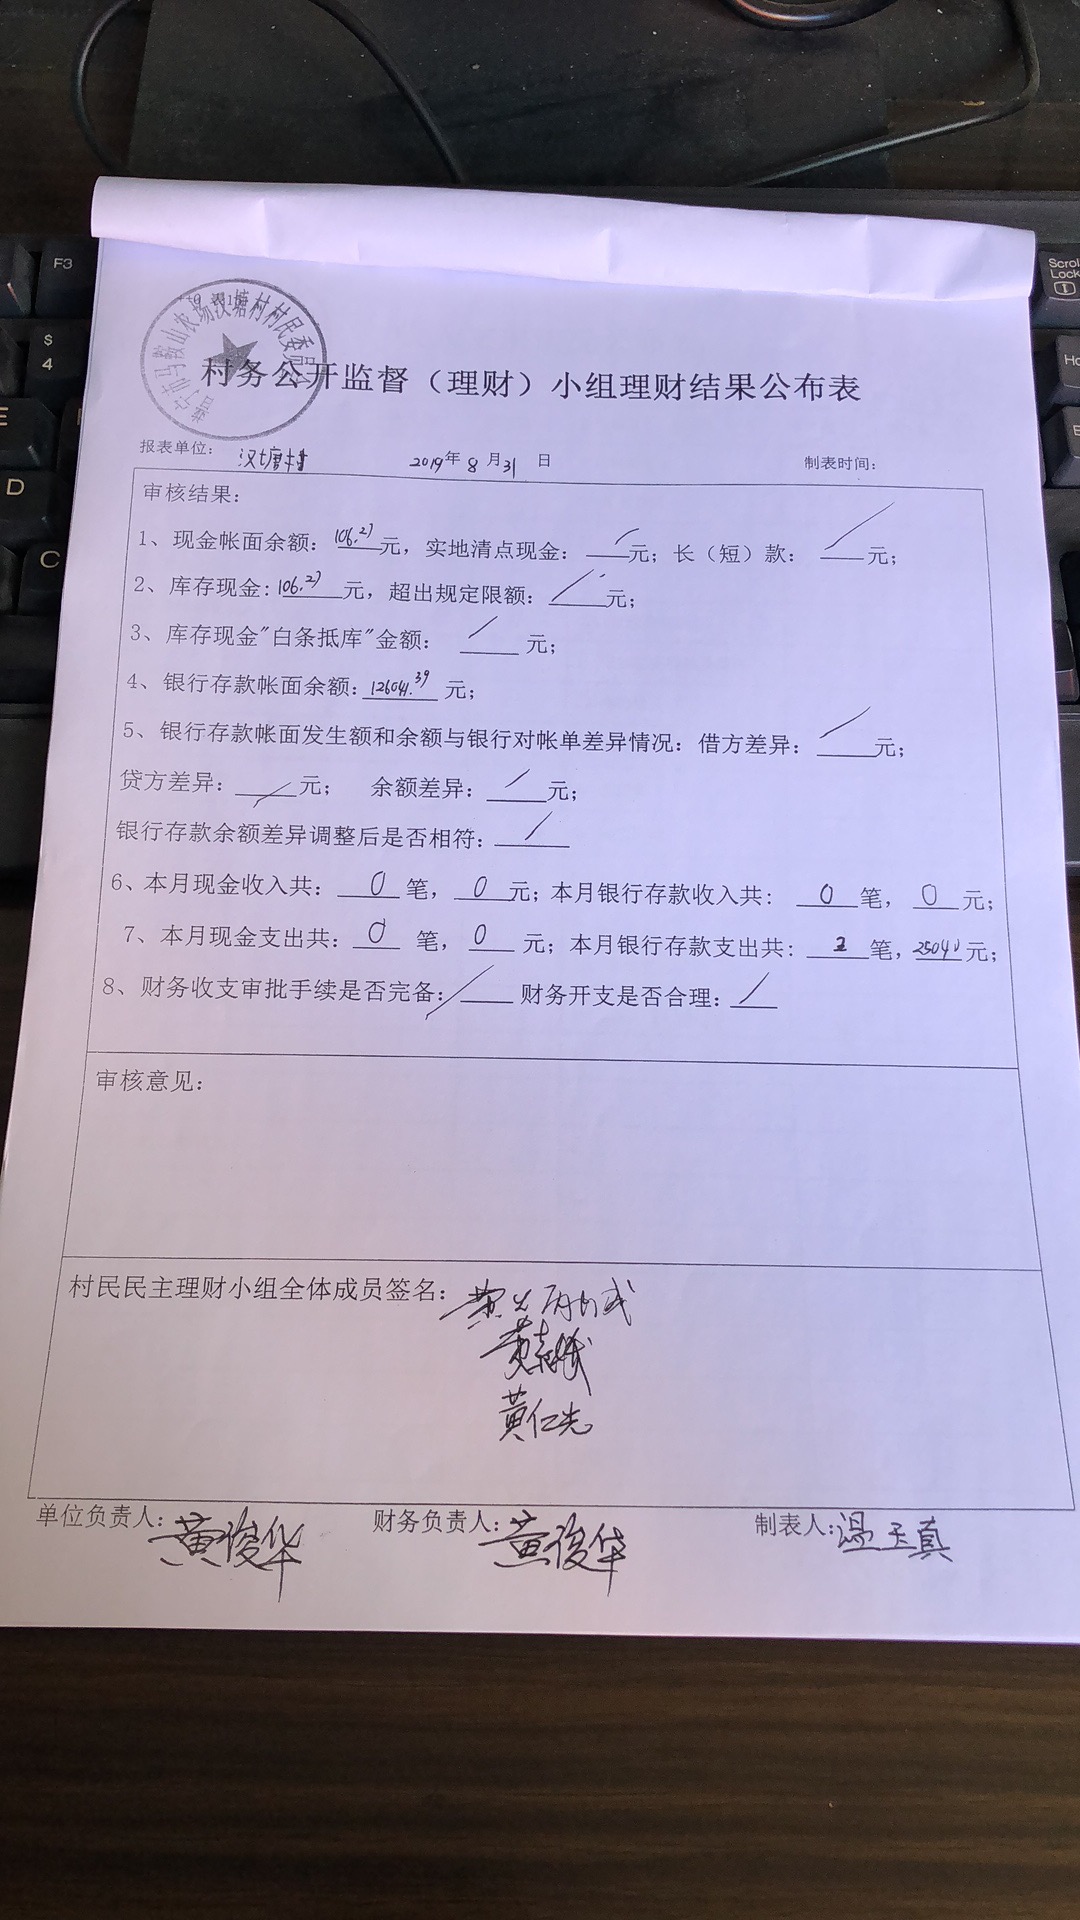 F3
$
4
E
D
C
Scrol
Lock
村务公开监督（理财）小组理财结果公布表
报表单位： 汉塘村 2019年 8 月 31 日 制表时间：
审核结果：
1、现金帐面余额：106.27元，实地清点现金：／元；长（短）款：／元；
2、库存现金：106.27元，超出规定限额：／元；
3、库存现金"白条抵库"金额：／元；
4、银行存款帐面余额：126041.39元；
5、银行存款帐面发生额和余额与银行对帐单差异情况：借方差异：／元；
贷方差异：／元； 余额差异：／元；
银行存款余额差异调整后是否相符：／
6、本月现金收入共：0笔，0元；本月银行存款收入共：0笔，0元；
7、本月现金支出共：0笔，0元；本月银行存款支出共：2笔，25040元；
8、财务收支审批手续是否完备：／ 财务开支是否合理：／
审核意见：
村民民主理财小组全体成员签名：
黄仁先
单位负责人：黄俊华 财务负责人：黄俊华 制表人：温玉真